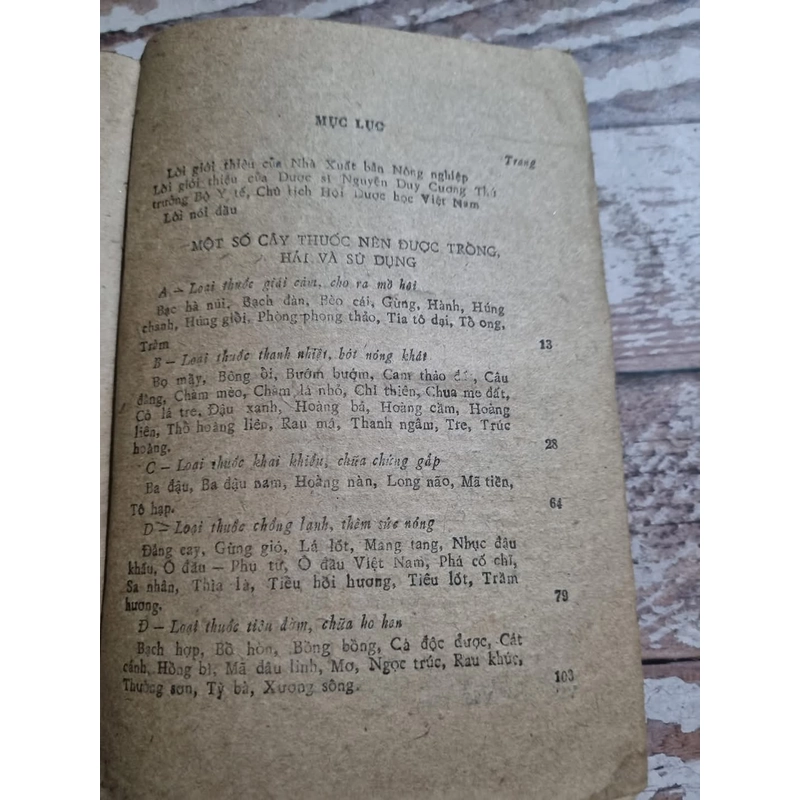 MỤC LỤC
Trang
Lời giới thiệu của Nhà Xuất bản Nông nghiệp
Lời giới thiệu của Dược sĩ Nguyễn Duy Cương Thứ
trưởng Bộ Y tế, Chủ tịch Hội Dược học Việt Nam
Lời nói đầu
MỘT SỐ CÂY THUỐC NÊN ĐƯỢC TRỒNG,
HÁI VÀ SỬ DỤNG
A — Loại thuốc giải cảm, cho ra mồ hôi
Bạc hà núi, Bạch đàn, Bèo cái, Gừng, Hành, Húng
chanh, Húng giồi, Phòng phong thảo, Tía tô dại, Tò ong,
Tràm 13
B — Loại thuốc thanh nhiệt, bớt nóng khát
Bọ mẩy, Bòng bồi, Bướm bướm, Cam thảo đất, Câu
đằng, Chàm mèo, Chàm lá nhỏ, Chỉ thiên, Chua me đất,
Cỏ lá tre, Đậu xanh, Hoàng bá, Hoàng cầm, Hoàng
liên, Thổ hoàng liên, Rau má, Thanh ngâm, Tre, Trúc
hoàng. 28
C — Loại thuốc khai khiếu, chữa chứng gấp
Ba đậu, Ba đậu nam, Hoàng nàn, Long não, Mã tiền,
Tô hạp. 64
D — Loại thuốc chống lạnh, thêm sức nóng
Đăng cay, Gừng gió, Lá lốt, Mang tang, Nhục đậu
khấu, Ô đầu — Phụ tử, Ô đầu Việt Nam, Phá cố chỉ,
Sa nhân, Thìa là, Tiểu hồi hương, Tiêu lốt, Trầm
hương. 79
Đ — Loại thuốc tiêu đờm, chữa ho hen
Bạch hợp, Bồ hòn, Bồng bồng, Cà độc dược, Cát
cánh, Hồng bì, Mã đâu linh, Mơ, Ngọc trúc, Rau khúc,
Thường sơn, Tỳ bà, Xương sông. 103